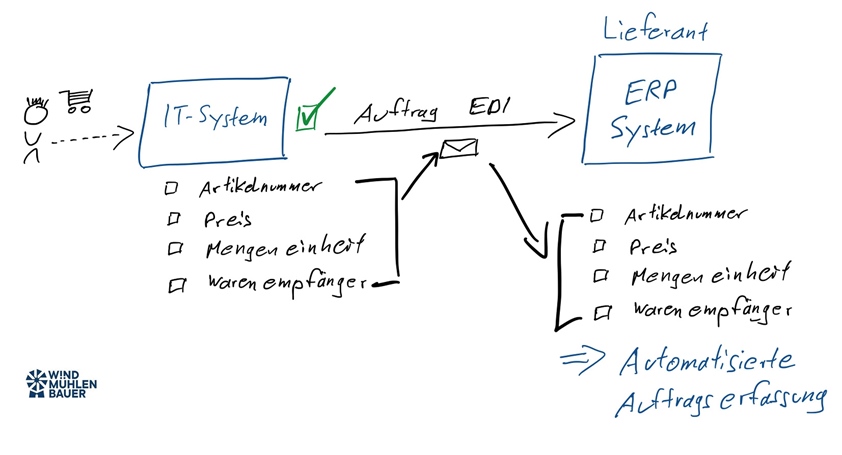 Lieferant
IT-System
Auftrag EDI
ERP
System
Artikelnummer
Preis
Mengeneinheit
Warenempfänger
Artikelnummer
Preis
Mengeneinheit
Warenempfänger
=> Automatisierte
Auftragserfassung
WIND
MÜHLEN
BAUER